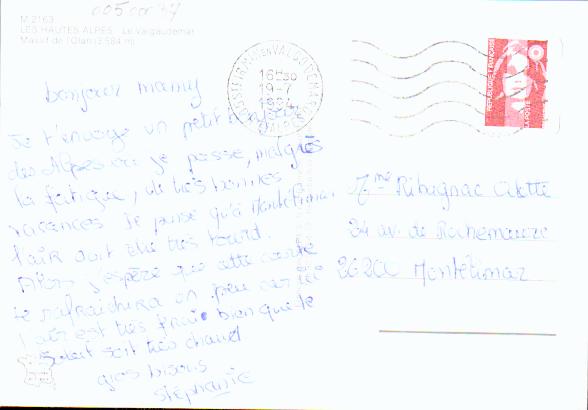 005 00 37
M.2163
LES HAUTES ALPES Le Valgaudemar
Massif de l'Olan (3.584 m)
16H30
19-7
1994
REPUBLIQUE FRANÇAISE
LA POSTE
bonjour mamy
Je t'envoye un petit bonjour
des Alpes ou je passe, malgrès
la fatigue, de très bonnes
vacances je pense qu'à Montélimar
l'air doit être très lourd.
Alors j'espère que cette carte
te rafraichira un peu car ici
l'air est très frais bien que le
Soleil soit très chaud
gros bisous
Stéphanie
Mme Ribugnac Odette
24 av. de Rochemaure
26200 Montélimar